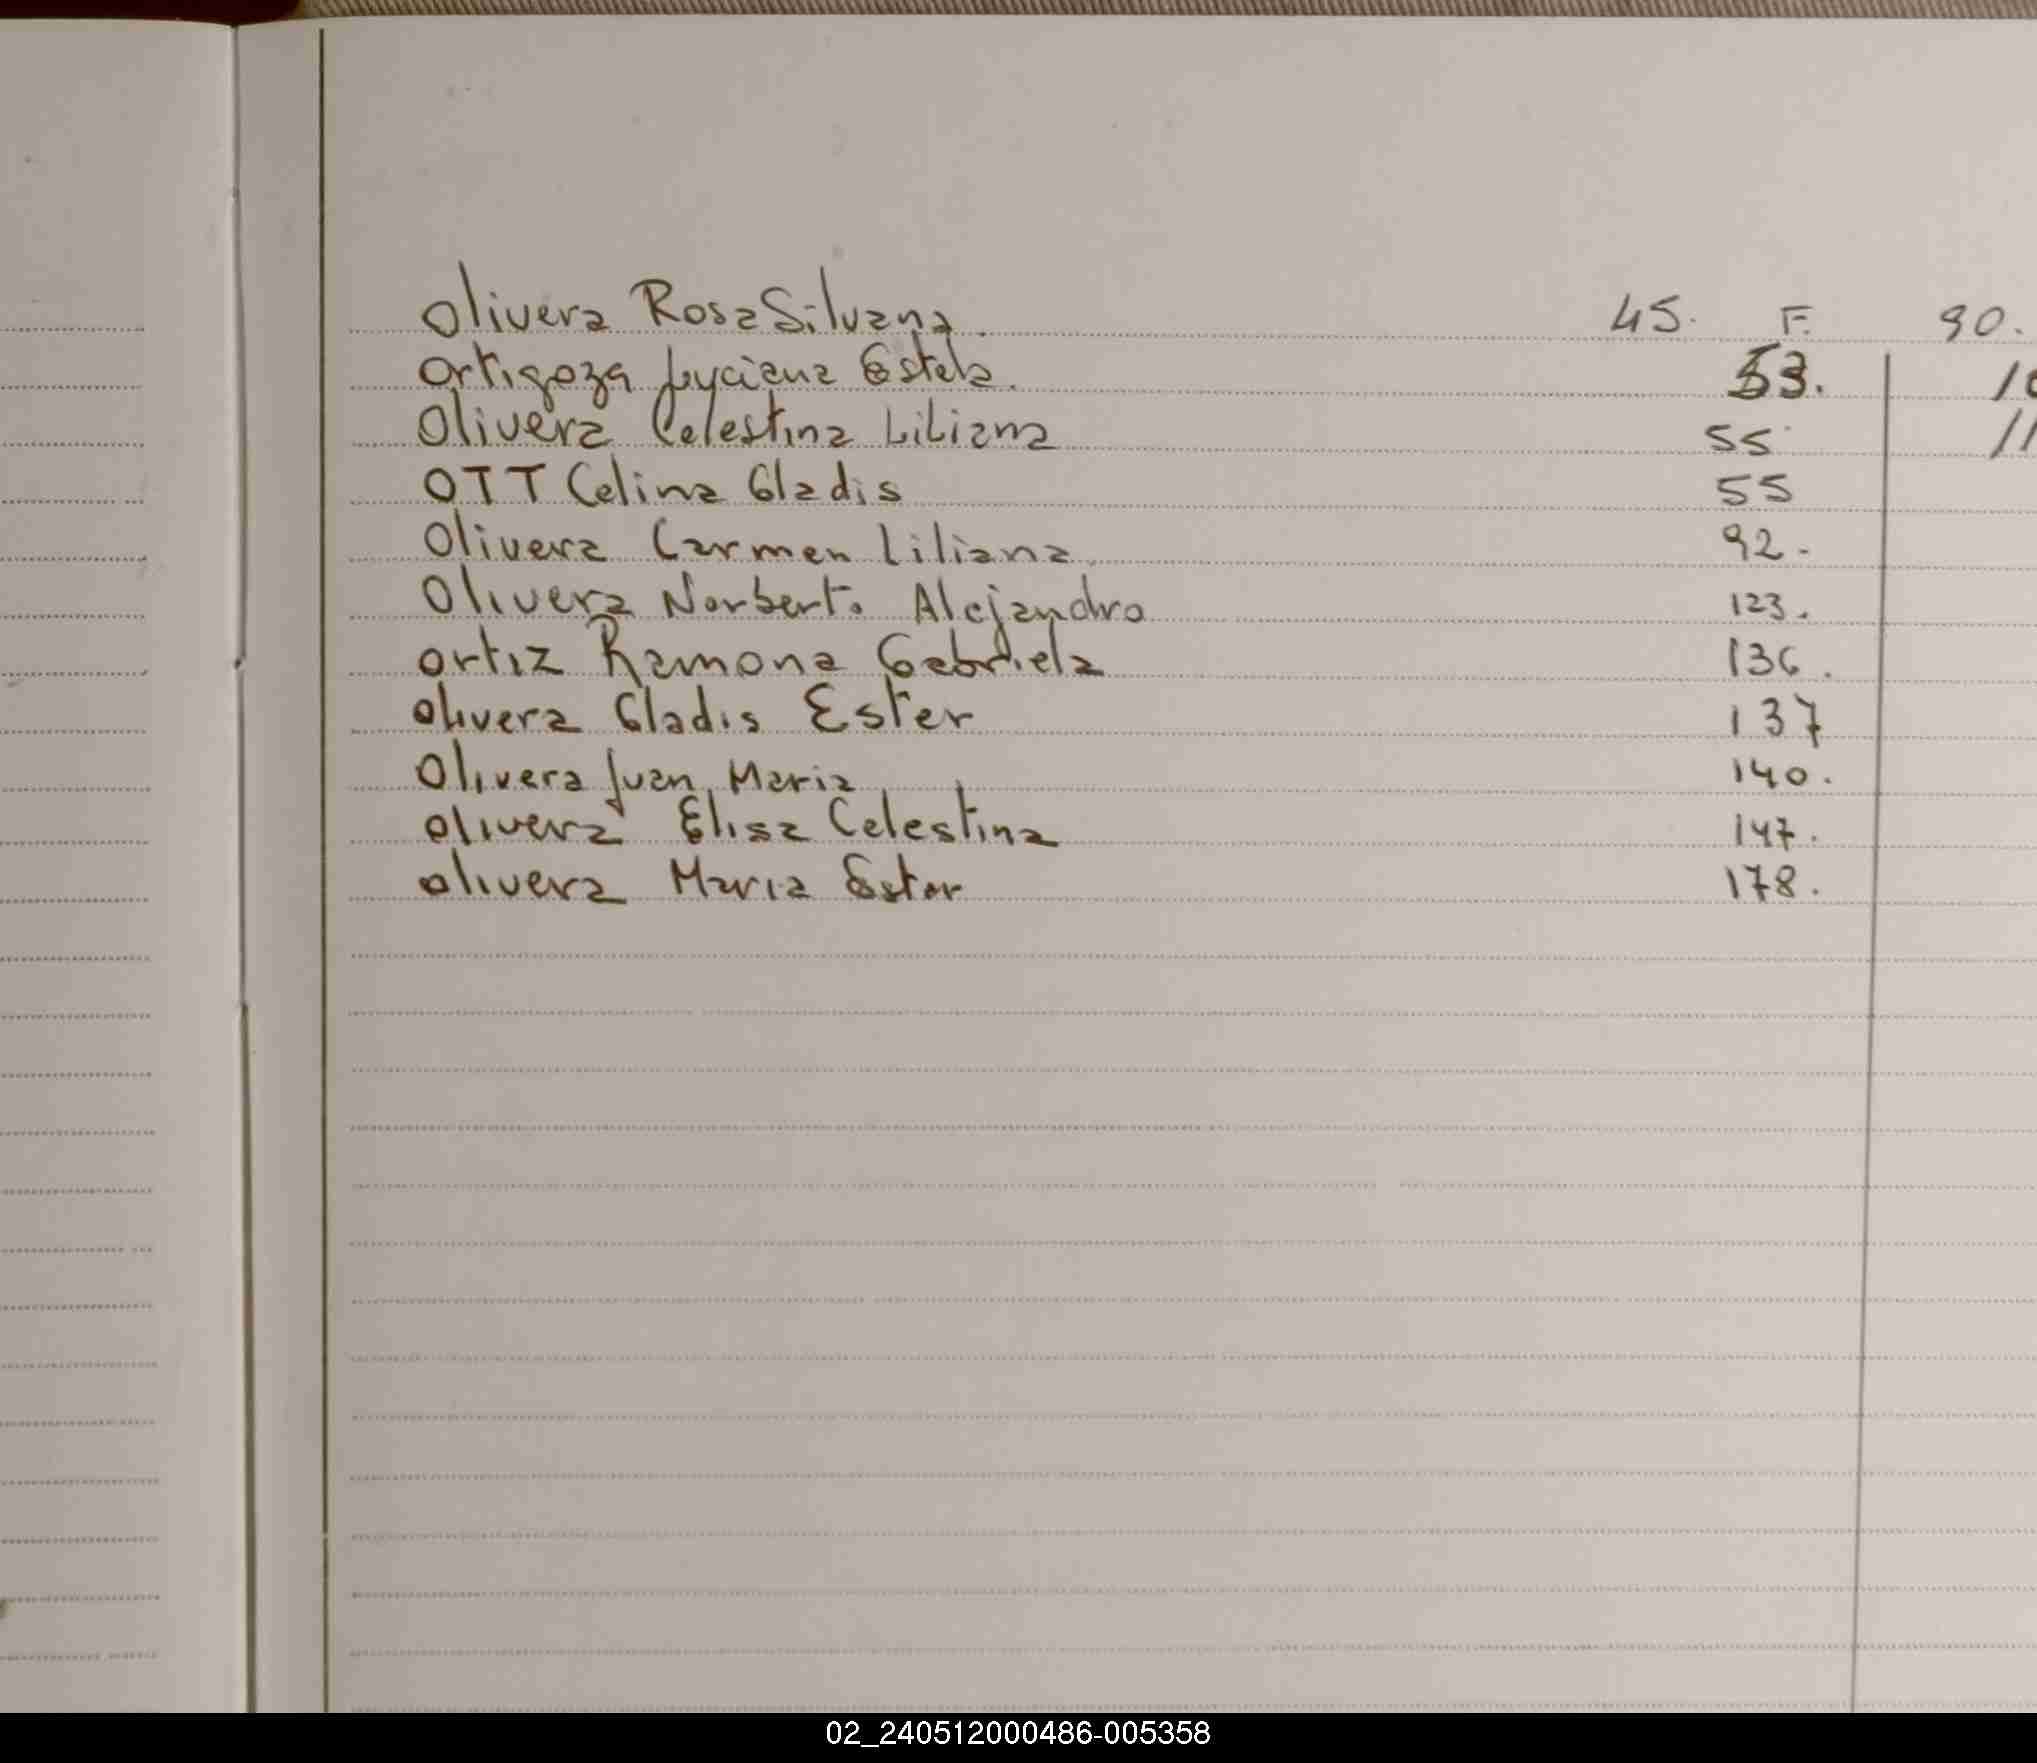 Olivera Rosa Silvana. 45. F. 90.
Ortigoza Luciana Estela. 53.
Olivera Celestina Liliana 55
OTT Celina Gladis 55
Olivera Carmen Liliana 92.
Olivera Norberto Alejandro 123.
Ortiz Ramona Gabriela 136.
Olivera Gladis Ester 137
Olivera Juan Maria 140.
Olivera Elisa Celestina 147.
Olivera Maria Ester 178.
02_240512000486-005358